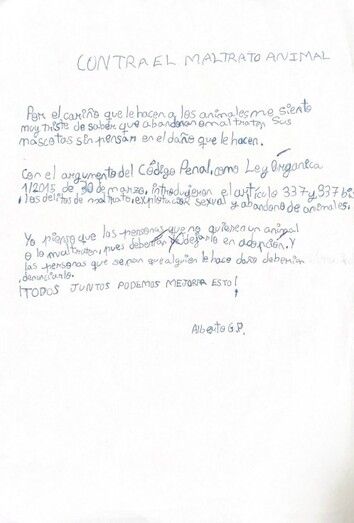 CONTRA EL MALTRATO ANIMAL
Por el cariño que le hacen a los animales me siento
muy triste de saber que abandonan o maltratan sus
mascotas sin pensar en el daño que le hacen.
Con el argumento del Código Penal, como Ley Orgánica
1/2015, de 30 de marzo, introdujeron el artículo 337 y 337 bis
, los delitos de maltrato, explotación sexual y abandono de animales.
Yo pienso que las personas que no quieren un animal
o lo maltratan, pues deberían dejarlo en adopción. Y
las personas que sepan que alguien le hace daño deberían
denunciarlo.
¡TODOS JUNTOS PODEMOS MEJORAR ESTO!
Alberto G.P.